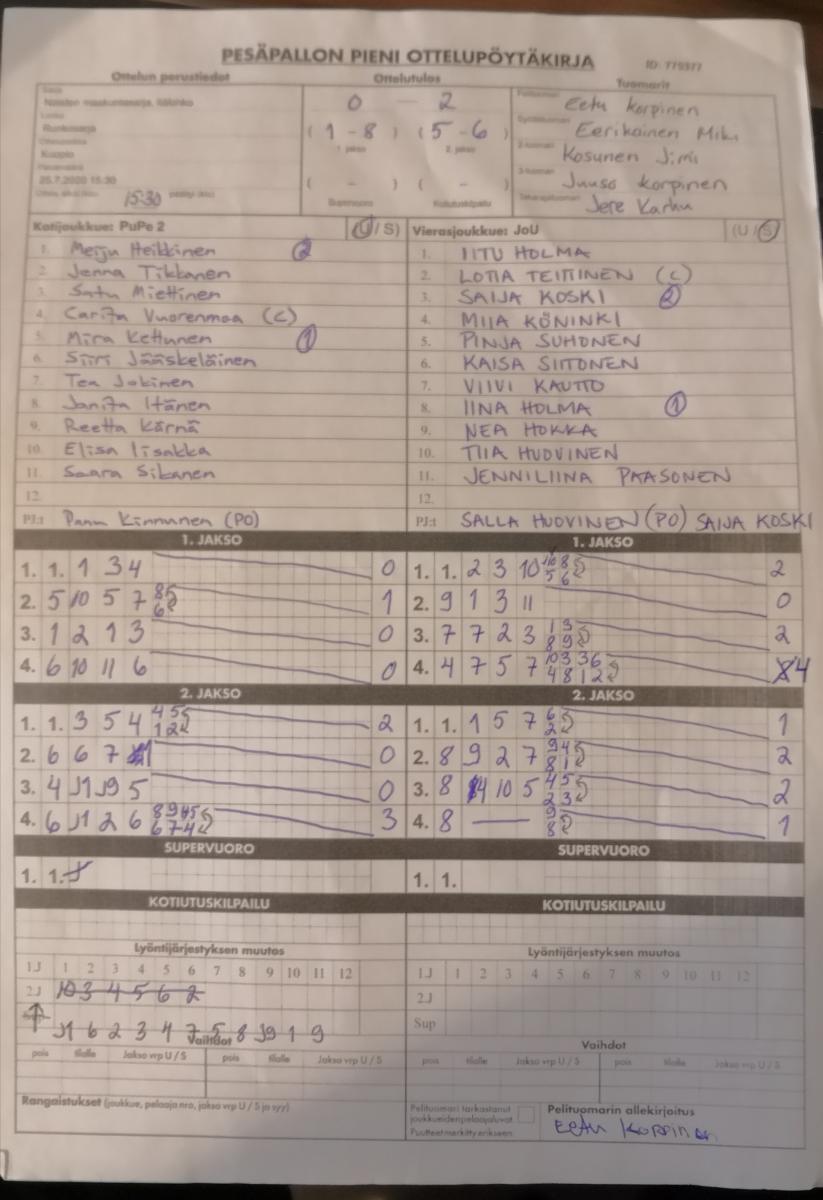 PESÄPALLON PIENI OTTELUPÖYTÄKIRJA ID: 779377
Ottelun perustiedot Ottelutulos Tuomarit
Sarja
Naisten maakuntasarja, Itälohko
Runkosarja
Kuopio
25.7.2020 15:30
15:30
0 - 2
( 1 - 8 ) ( 5 - 6 )
1. jakso 2. jakso
( - ) ( - )
Supervuoro Kotiutuskilpailu
Eetu Korpinen
Eerikäinen
Kosunen
Juuso Korpinen
Jere Karhu
Kotijoukkue: PuPe 2 (U / S)
1. Meiju Heikkinen 2
2. Jenna Tikkanen
3. Satu Miettinen
4. Carita Vuorenmaa (C)
5. Mira Kettunen 1
6. Siiri Jääskeläinen
7. Tea Jokinen
8. Janita Itänen
9. Reetta Kärnä
10. Elisa Iisakka
11. Saara Sikanen
12.
PJ:t Panu Kinnunen (PO)
Vierasjoukkue: JoU (U / S)
1. IITU HOLMA
2. LOTTA TEITTINEN (C)
3. SAIJA KOSKI 2
4. MIIA KÖNINKI
5. PINJA SUHONEN
6. KAISA SIITONEN
7. VIIVI KAUTTO
8. IINA HOLMA 1
9. NEA HOKKA
10. TIIA HUOVINEN
11. JENNILIINA PAASONEN
12.
PJ:t SALLA HUOVINEN (PO) SAIJA KOSKI
1. JAKSO
1. 1. 1 3 4 0
2. 5 10 5 7 8 6 1
3. 1 2 1 3 0
4. 6 10 11 6 0
1. JAKSO
1. 1. 2 3 10 8 5 6 2
2. 9 1 3 11 0
3. 7 7 2 3 1 3 8 9 2
4. 4 7 5 7 10 3 3 6 4 8 1 2 4
2. JAKSO
1. 1. 3 5 4 4 5 1 2 2
2. 6 6 7 0
3. 4 J1 J9 5 0
4. 6 J1 2 6 8 9 6 7 4 3
2. JAKSO
1. 1. 1 5 7 6 2 1
2. 8 9 2 7 9 4 8 1 2
3. 8 4 10 5 4 5 2 3 2
4. 8 — 9 8 1
SUPERVUORO
1. 1.
SUPERVUORO
1. 1.
KOTIUTUSKILPAILU
KOTIUTUSKILPAILU
Lyöntijärjestyksen muutos
1.J 1 2 3 4 5 6 7 8 9 10 11 12
2.J 10 3 4 5 6 2
J1 6 2 3 4 7 5 8 J9 1 9
Vaihdot
pois tilalle Jakso vrp U / S pois tilalle Jakso vrp U / S
Lyöntijärjestyksen muutos
1.J 1 2 3 4 5 6 7 8 9 10 11 12
2.J
Sup
Vaihdot
pois tilalle Jakso vrp U / S pois tilalle Jakso vrp U / S
Rangaistukset (joukkue, pelaaja nro, jakso vrp U / S ja syy)
Pelituomari tarkastanut
joukkueiden pelaajaluvat
Puutteet merkitty erikseen
Pelituomarin allekirjoitus
Eetu Korpinen